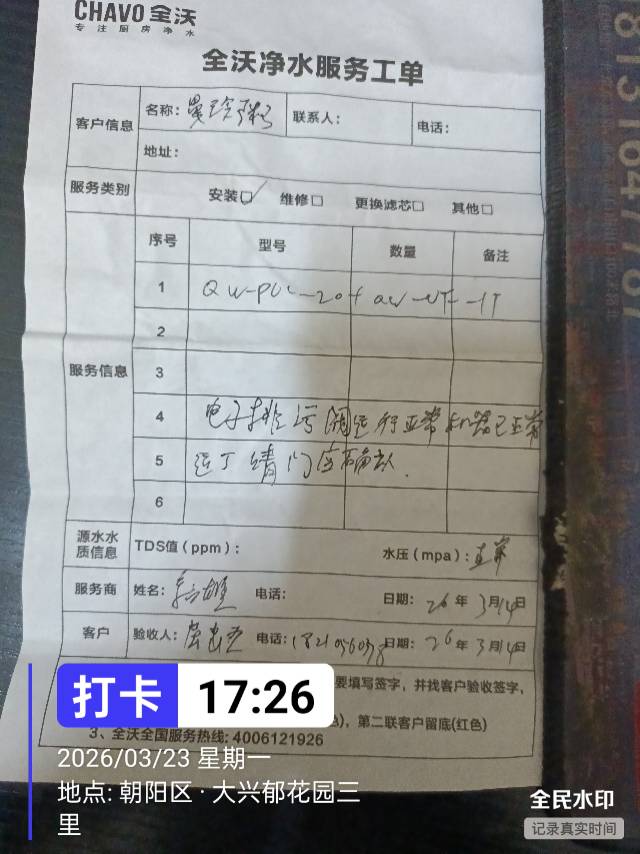 CHAVO 全沃
专注厨房净水
全沃净水服务工单
客户信息 名称: 联系人: 电话:
地址:
服务类别 安装☑ 维修□ 更换滤芯□ 其他□
服务信息 序号 型号 数量 备注
1
2
3
4 电子排污阀运行正常 机器已正常
5 运行请门店确认.
6
源水水质信息 TDS值（ppm）: 水压（mpa）: 正常
服务商 姓名: 电话: 日期: 26年3月14日
客户 验收人: 电话: 日期: 26年3月14日
要填写签字，并找客户验收签字，
第二联客户留底(红色)
3、全沃全国服务热线: 4006121926
打卡 17:26
2026/03/23 星期一
地点: 朝阳区 · 大兴郁花园三
里
全民水印
记录真实时间
813164787